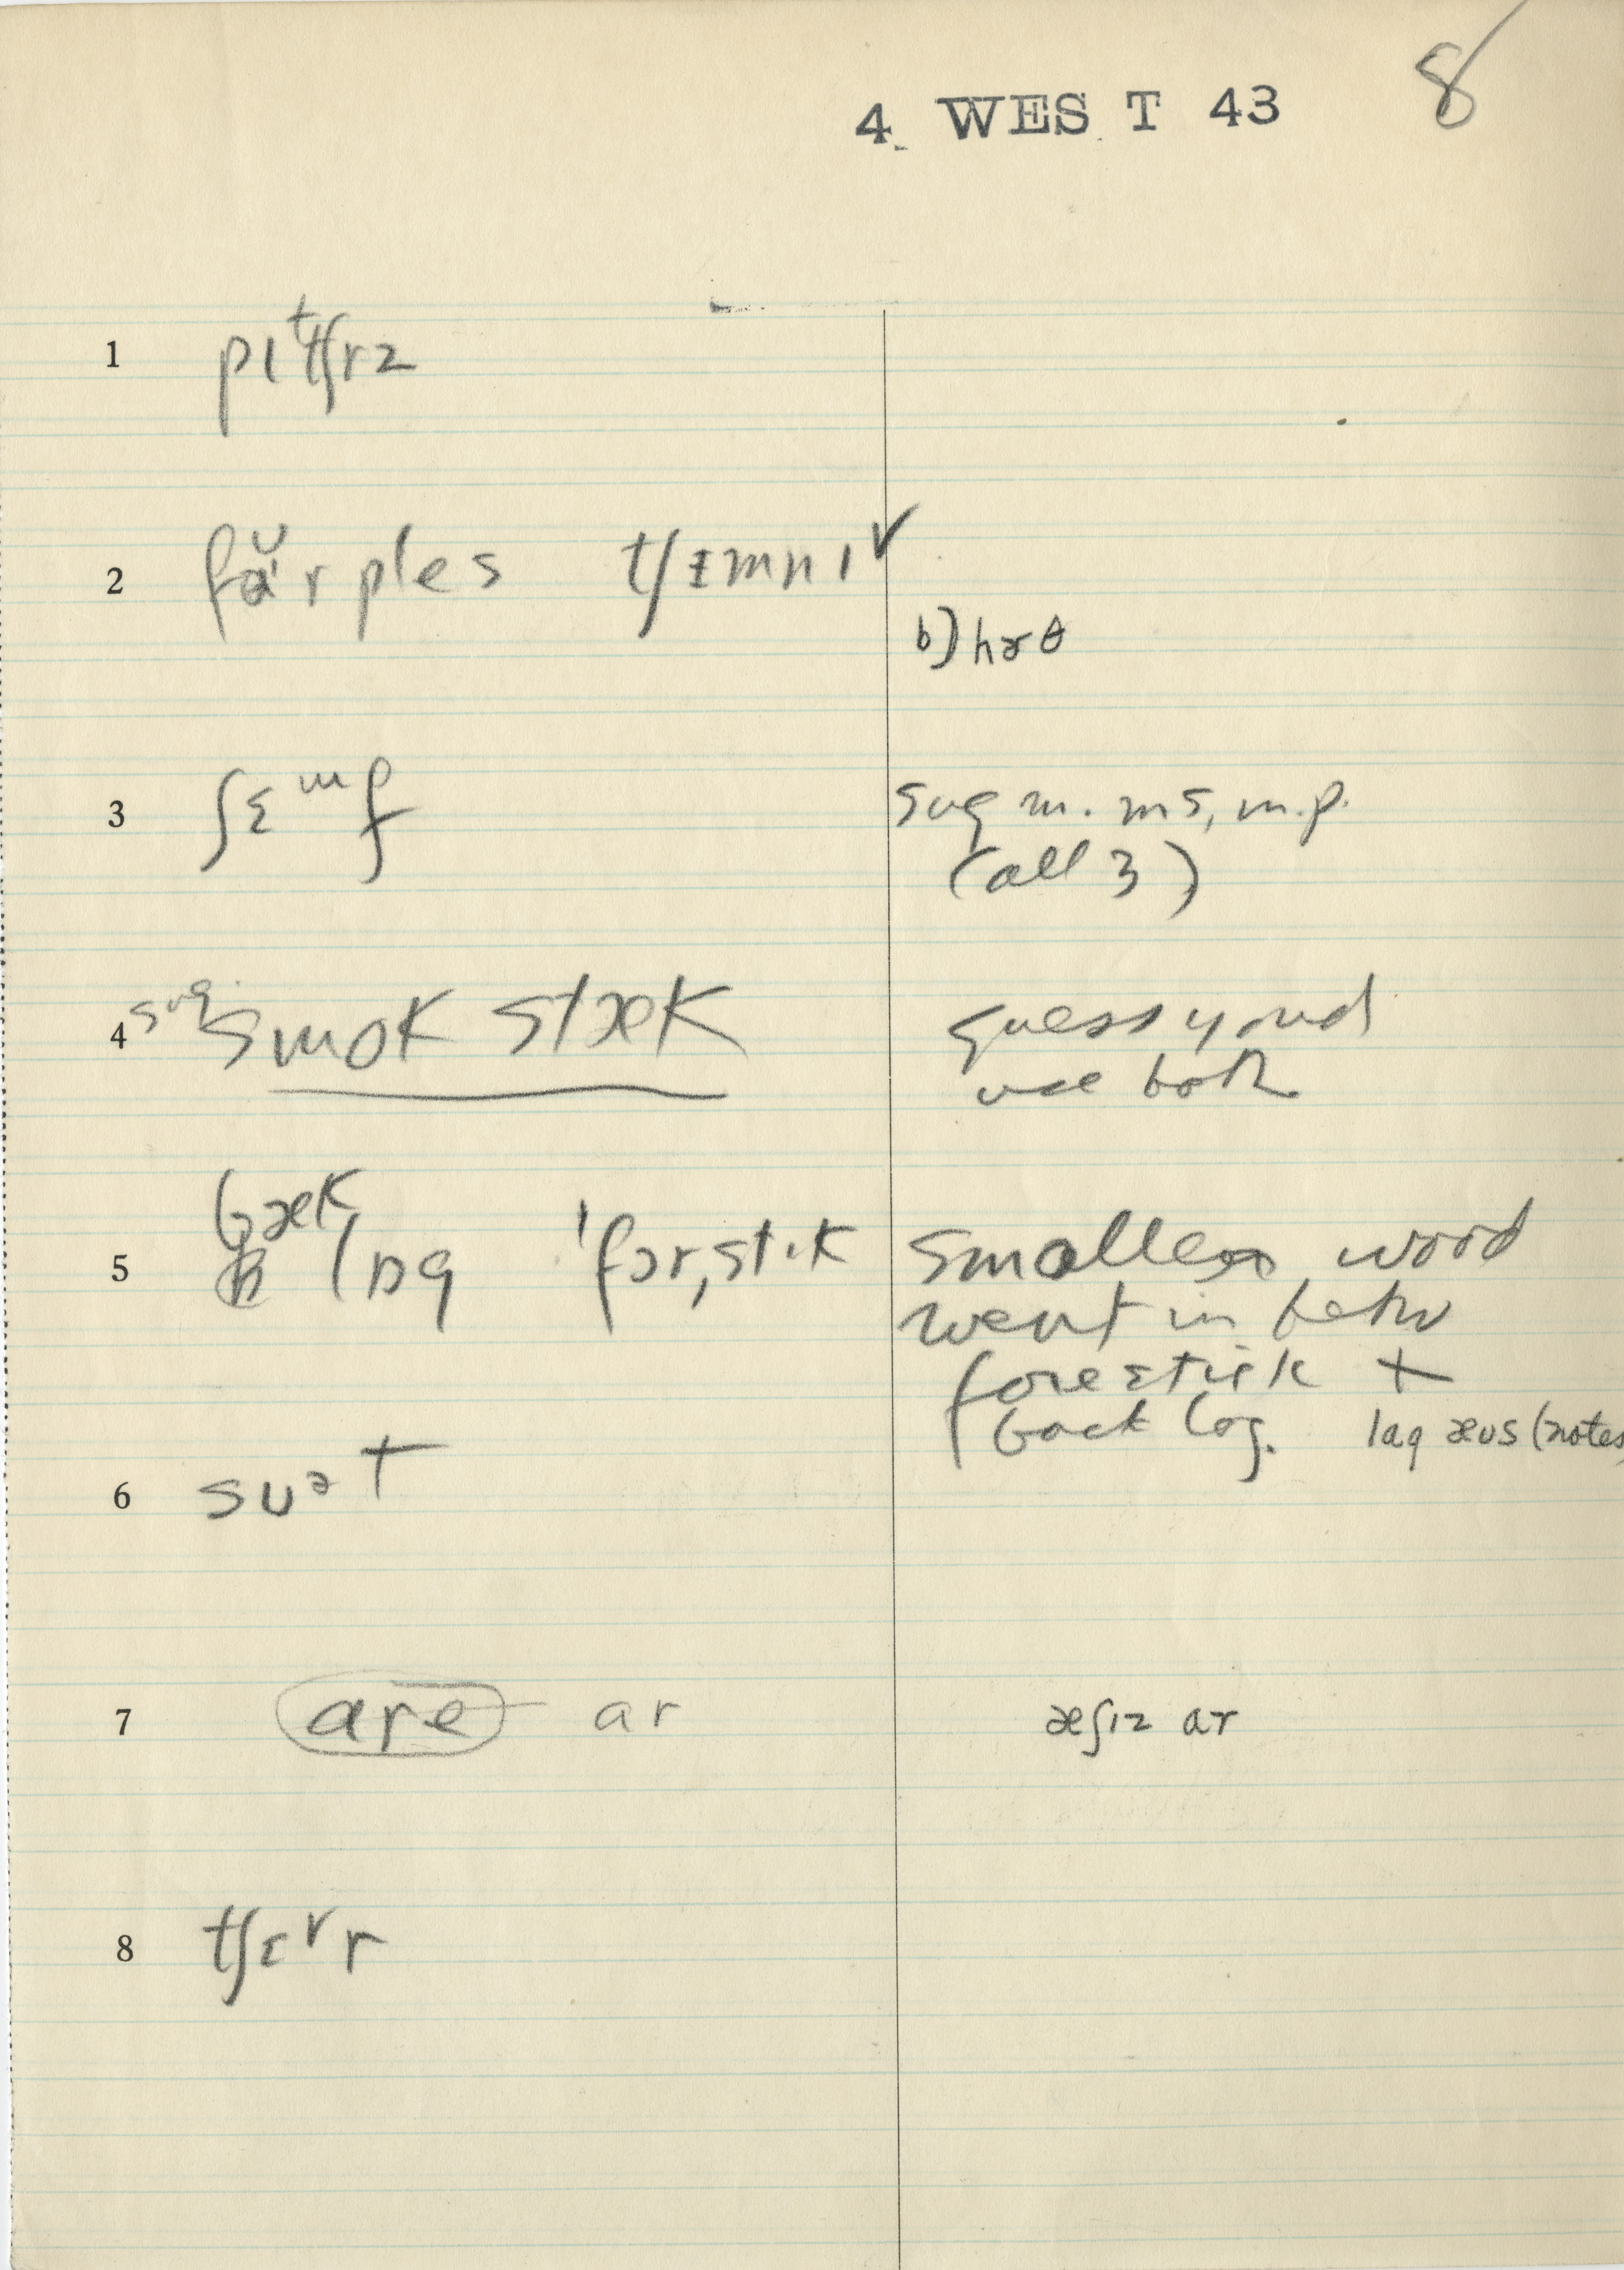 4 WEST 43 8
1 pɪᵗtʃrz
2 faᵕɪr ples tʃɪmnɪ ✓
b) hɝθ
3 ʃɛᵐf sug m. ms, m.p.
(all 3)
4 sug. smok stæk guess youd
use both
5 bæk lɒg ˈfɔrˌstɪk smaller wood
went in betw
forestick +
back log. lɑg æʊs (notes)
6 sʊᵊt
7 are ar æʃɪz ɑr
8 tʃɛᵛr